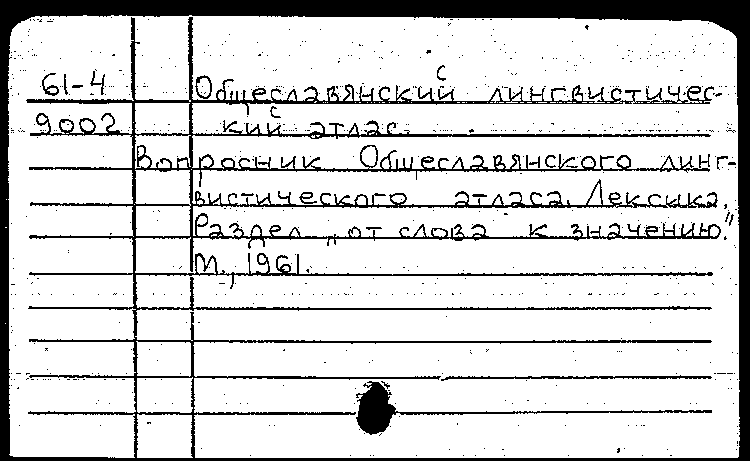 61-4 Общеславянский лингвистичес-
9002 кий атлас.
Вопросник Общеславянского линг-
вистического атласа. Лексика.
Раздел „от слова к значению."
М., 1961.